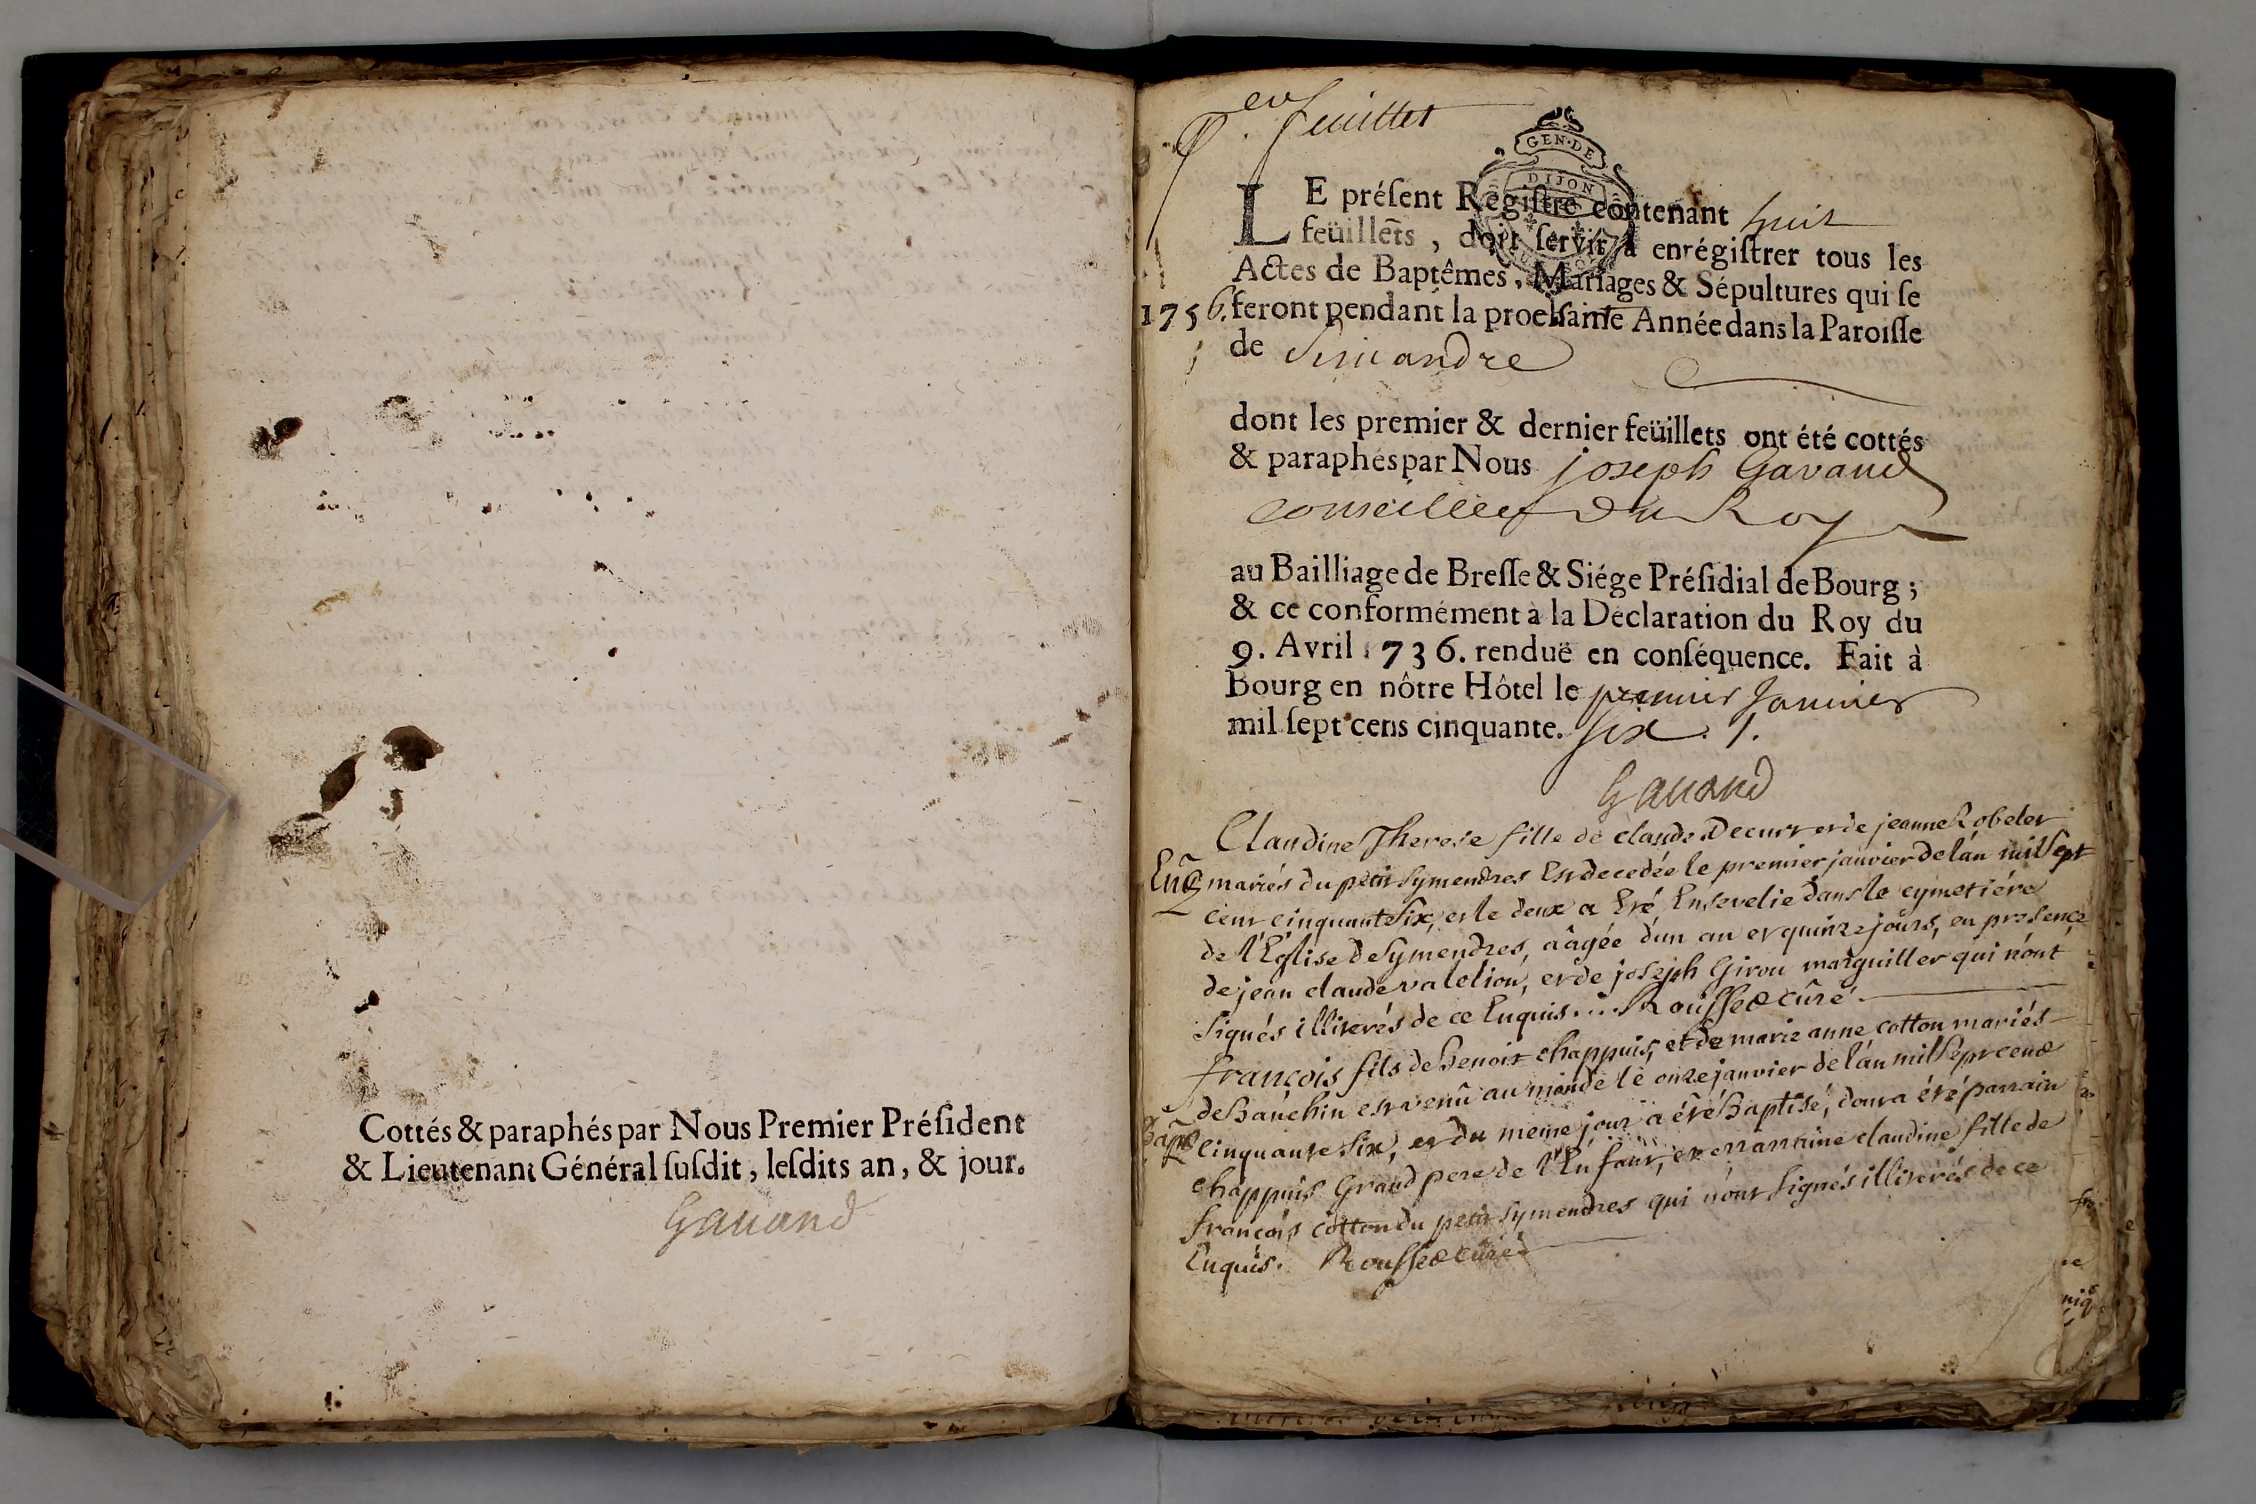 Cottés & paraphés par Nous Premier Préſident
& Lieutenant Général ſuſdit, leſdits an, & jour.
Gauand
P.er feuillet
GEN·DE
DIJON
LE préſent Régiſtre contenant huit
feüillets, doit ſervir à enrégiſtrer tous les
Actes de Baptêmes, Mariages & Sépultures qui ſe
1756. feront pendant la prochaine Année dans la Paroiſſe
de Simandre
dont les premier & dernier feüillets ont été cottés
& paraphés par Nous joseph Gavand
conseiller du Roy
au Bailliage de Breſſe & Siége Préſidial de Bourg;
& ce conformément à la Déclaration du Roy du
9. Avril 1736. renduë en conſéquence. Fait à
Bourg en nôtre Hôtel le premier Janvier
mil ſept cens cinquante. six .1.
Gauand
Claudine Therese fille de claude Decurt et de jeanne Robelet
mariés du petit Symendres Est decedée le premier janvier de lán mil sept
cent cinquante six, et le deux a Eté Ensevelie dans le cymetiére
de l'Eglise de Symendres, aâgée dun an et quinze jours, en presence
de jean claude valetion, et de joseph Girou marguiller qui nónt
signés illiterés de ce Enquis.... Roussed curé.
françois fils de Benoit chappuis, et de marie anne cotton mariés
de Banchin est venû au monde le onze janvier de lán mil sept cend
Bapt cinquante six, et du meme jour a été Baptisé, dont a été parrain
chappuis Grand pere de l'Enfant, et marraine claudine fille de
françois cotton du petit symendres qui nónt signés illiterés de ce
Enquis. Roussed curé